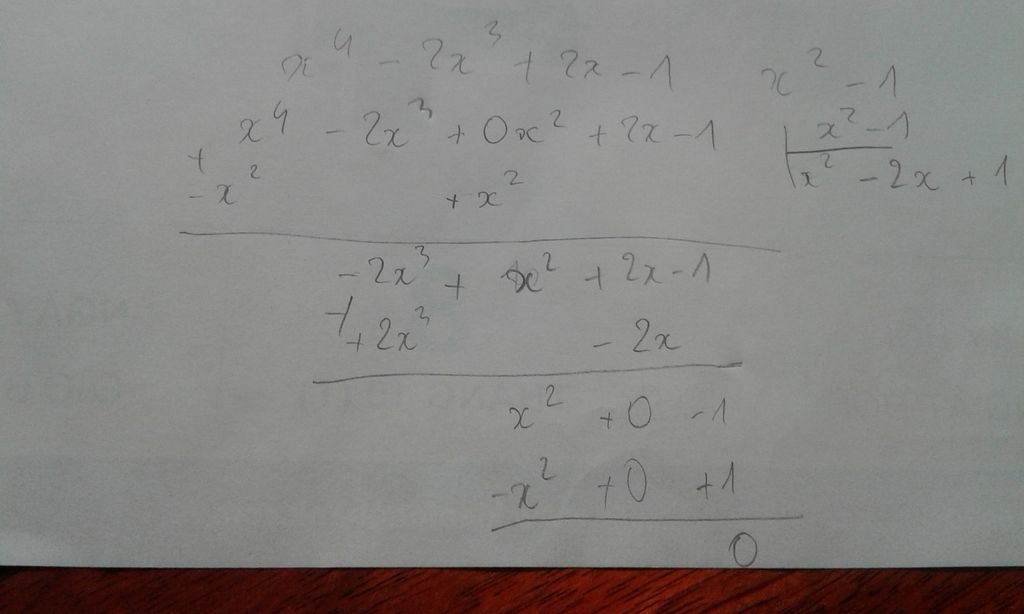 x⁴ - 2x³ + 2x - 1 x² - 1
x⁴ - 2x³ + 0x² + 2x - 1 x² - 1
+
- x² + x² x² - 2x + 1
- 2x³ + x² + 2x - 1
+ 2x³ - 2x
x² + 0 - 1
- x² + 0 + 1
0